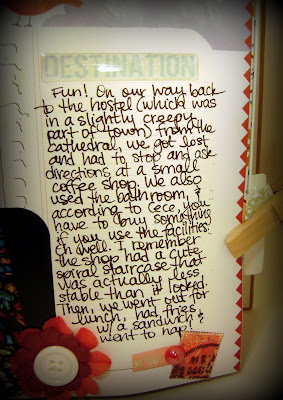 DESTINATION
Fun! On our way back
to the hostel (which was
in a slightly creepy
part of town) from the
cathedral, we got lost
and had to stop and ask
directions at a small
coffee shop. We also
used the bathroom, &
according to Cece, you
have to buy something
if you use the facilities.
Oh well. I remember
the shop had a cute
spiral staircase that
was actually less
stable than it looked.
Then, we went out for
lunch, had fries
w/ a sandwich &
went to nap!